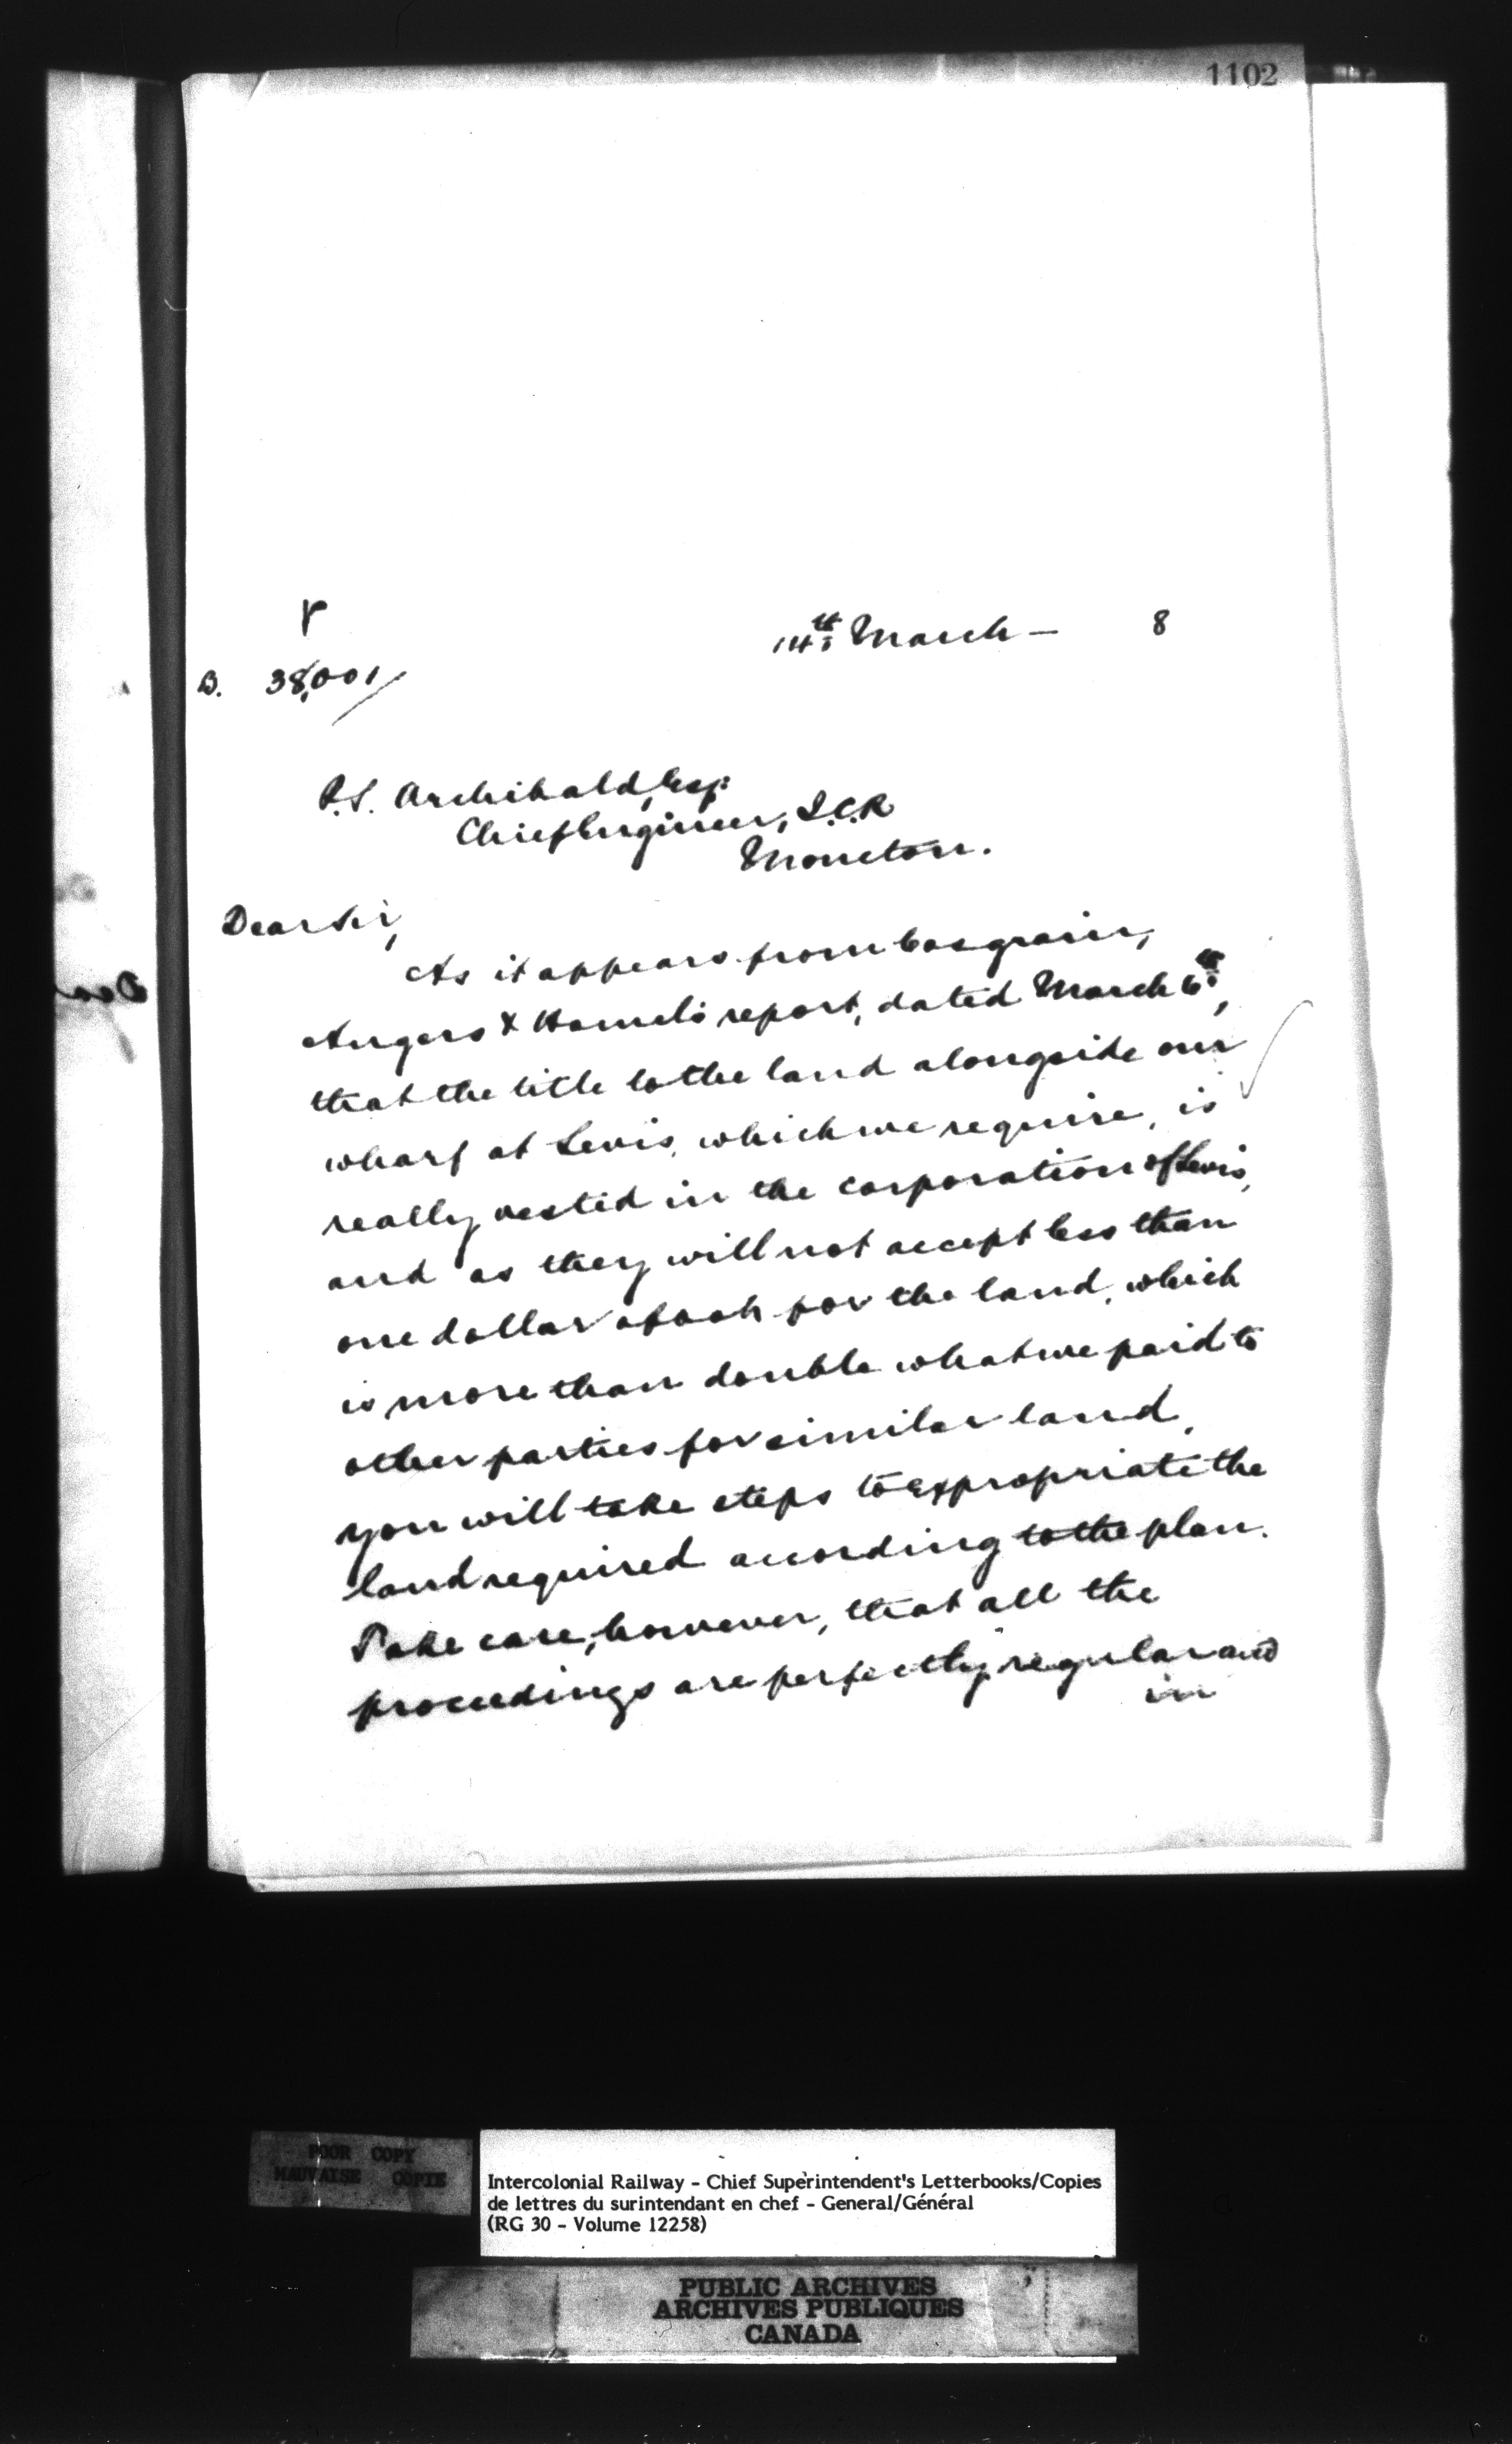 1102
r
14th March — 8
B. 38,001/
P.S. Archibald, Esq:
Chief Engineer, I.C.R
Moncton.
Dear Sir,
As it appears from Casgrain,
Angers & Hamel's report, dated March 6th,
that the title to the land alongside our
wharf at Levis, which we require, is
really vested in the corporation of Levis,
and as they will not accept less than
one dollar a foot for the land, which
is more than double what we paid to
other parties for similar land,
you will take steps to expropriate the
land required according to the plan.
Take care, however, that all the
proceedings are perfectly regular and
in
POOR COPY
MAUVAISE COPIE
Intercolonial Railway - Chief Superintendent's Letterbooks/Copies
de lettres du surintendant en chef - General/Général
(RG 30 - Volume 12258)
PUBLIC ARCHIVES
ARCHIVES PUBLIQUES
CANADA